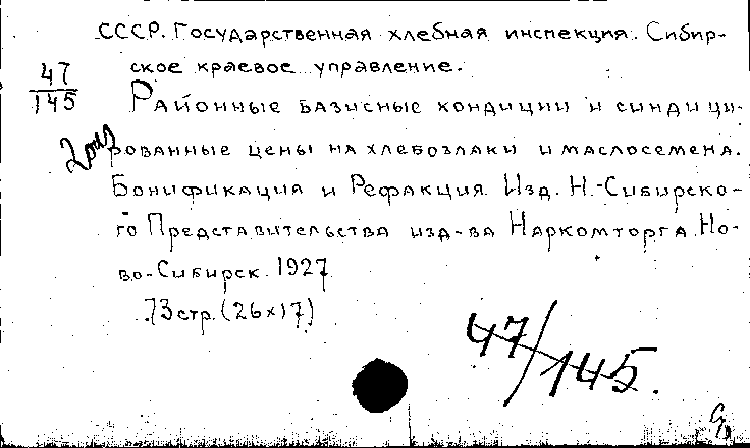 СССР. Государственная хлебная инспекция. Сибир-
ское краевое управление.
47
145
Районные базисные кондиции и синдици-
рованные цены на хлебозлаки и маслосемена.
Бонификация и Рефакция. Изд. Н.-Сибирско-
го Представительства изд-ва Наркомторга. Но-
во-Сибирск. 1927
73 стр. (26×17)
47/145.